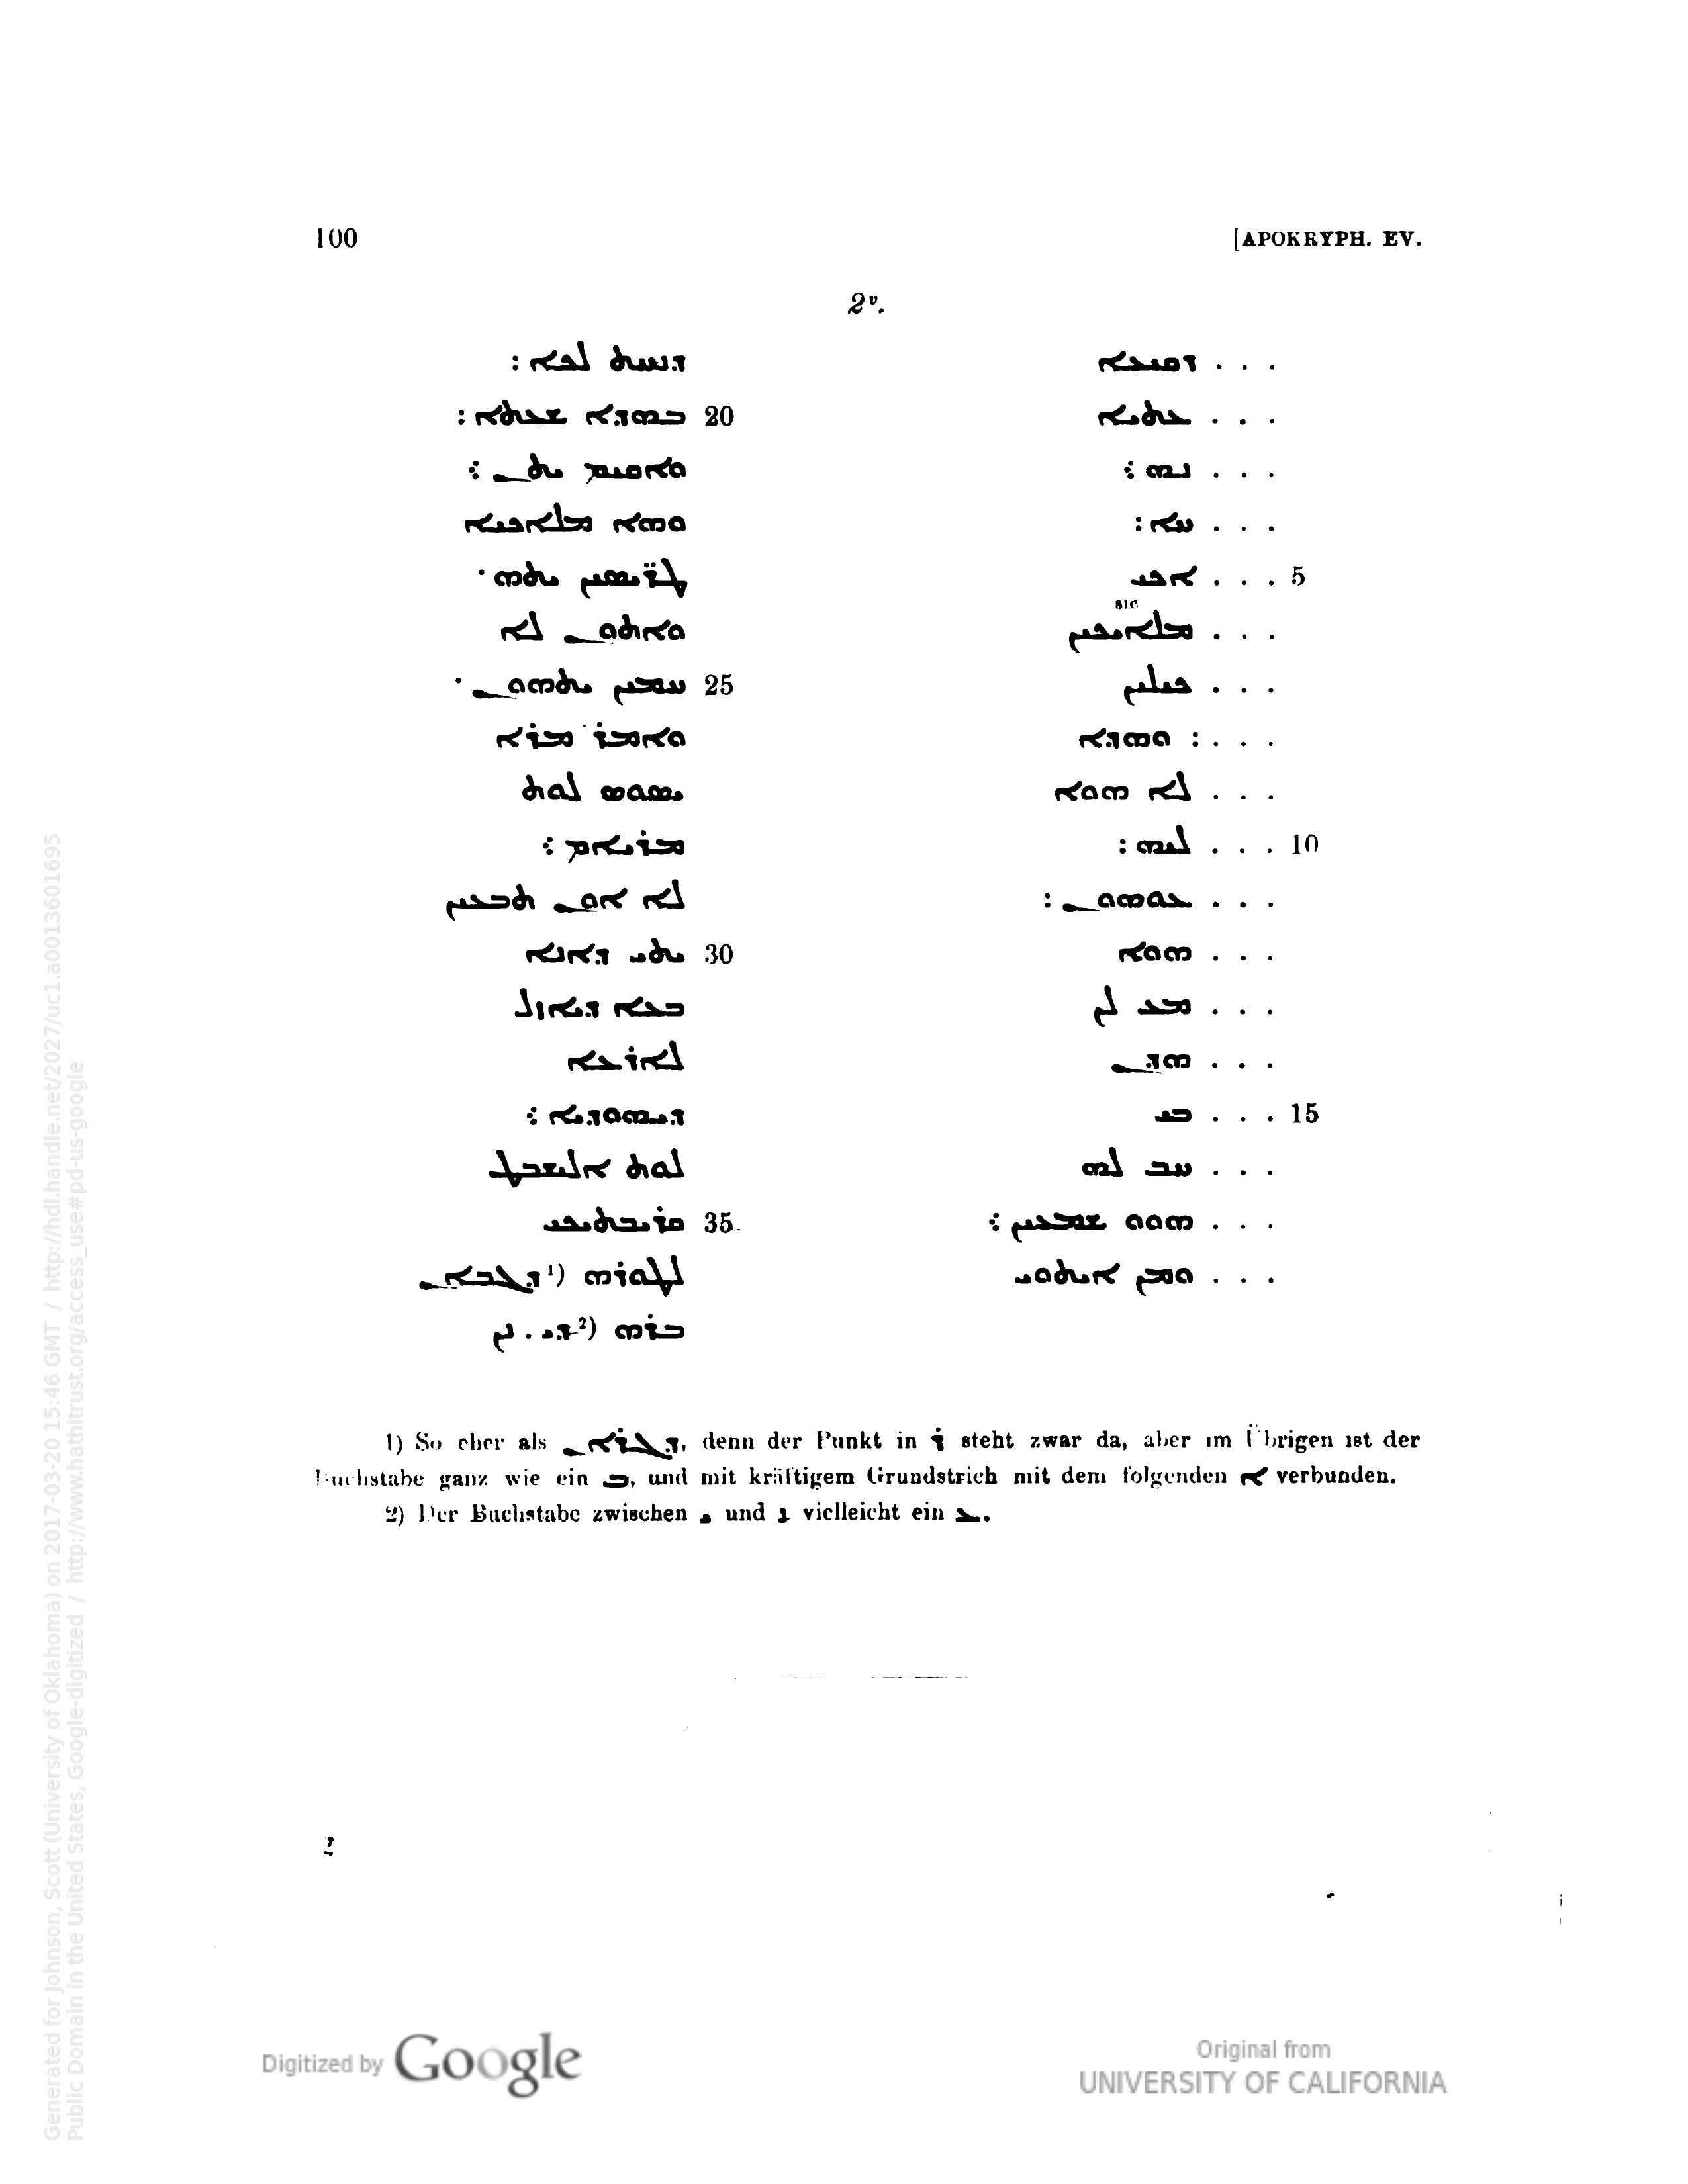 100
[APOKRYPH. EV.
2v.
. . . ܪܩܝܥܐ
. . . ܥܬܝܐ
. . . ܢܗ ܀
. . . ܚܐ :
5 . . . ܐܟܝ
sic
. . . ܡܠܐܝܟܝܢ
. . . ܟܝܠܝܢ
. . . : ܘܗܕܐ
. . . ܠܐ ܗܘܐ
10 . . . ܠܝܗ :
. . . ܥܘܗܘܢ :
. . . ܗܘܐ
. . . ܡܥ ܠܢ
. . . ܗܕܢ
15 . . . ܒܝ
. . . ܚܒ ܠܗ
. . . ܗܘܘ ܫܡܥܝܢ ܀
. . . ܘܡܢ ܐܝܬܘܝ
ܕܢܚܬ ܠܟܐ :
20 ܒܗܕܐ ܫܥܬܐ :
ܘܐܩܝܡ ܝܬܢ ܀
ܘܗܐ ܡܠܐܟܝܐ
ܛܪ̈ܝܣܝܢ ܝܬܗ ·
ܘܐܬܘܢ ܠܐ
25 ܚܡܝܢ ܝܬܗܘܢ ·
ܘܐܡܪ ܡܪܐ
ܝܣܘܣ ܠܘܬ
ܡܪܝܐܡ ܀
ܠܐ ܐܘܢ ܬܒܥܝܢ
30 ܝܬܝ ܕܐܢܐ
ܒܥܐ ܕܝܐܙܠ
ܠܐܪܥܐ
ܕܝܗܘܕܝܐ ܀
ܠܘܬ ܐܠܝܫܒܛ
35 ܩܪܝܒܬܝܟܝ
ܠܛܘܪܗ (1 ܕܓܒܐܢ
ܒܪܗ (2 ܕܝ . ܢܢ
1) So eher als ܕܓܪܐܢ, denn der Punkt in ܪ steht zwar da, aber im Übrigen ist der
Buchstabe ganz wie ein ܒ, und mit kräftigem Grundstrich mit dem folgenden ܐ verbunden.
2) Der Buchstabe zwischen ܝ und ܢ vielleicht ein ܥ.
Generated for Johnson, Scott (University of Oklahoma) on 2017-03-20 15:46 GMT / http://hdl.handle.net/2027/uc1.a0013601695
Public Domain in the United States, Google-digitized / http://www.hathitrust.org/access_use#pd-us-google
Digitized by Google
Original from
UNIVERSITY OF CALIFORNIA